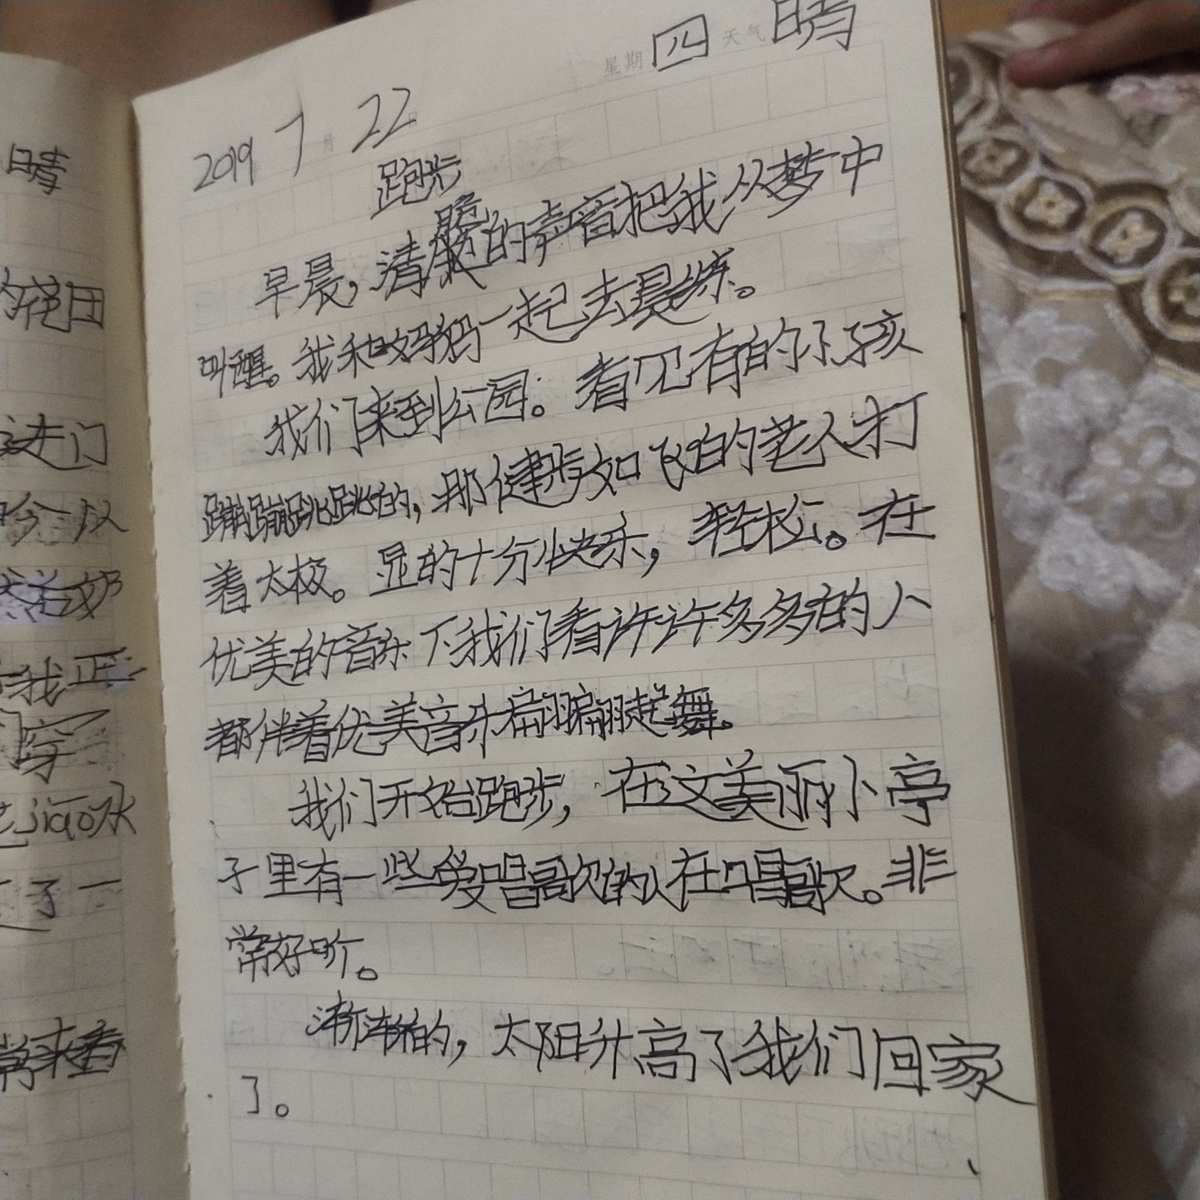 星期 四 天气 晴
2019 7 月 22
跑步
早晨，清晨的声音把我从梦中
叫醒。我和妈妈一起去晨练。
我们来到公园。看见有的小孩
蹦蹦跳跳的，那健步如飞的的老人打
着太极。显的十分快乐，轻松。在
优美的音乐下我们看许许多多有的人
都伴着优美音乐翩翩起舞。
我们开始跑步，在这美丽小亭
子里有一些爱唱歌的人在唱歌。非
常好听。
渐渐的，太阳升高了我们回家
了。
晴
的花田
进门
jiao水
了一
常来看